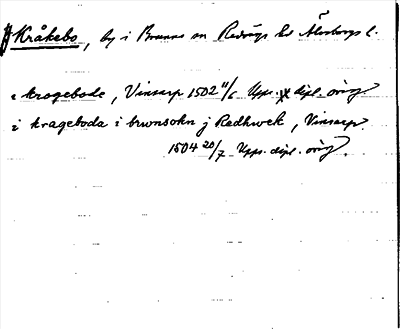 Kråkebo, by i Brunns sn Redvägs hd Älvsborgs l.
i krogebode, Vinsarp 1502 11/6 Upps. dipl. orig.
i krageboda i brwnsokn j Redhwek, Vinsarp
1504 20/7 Upps. dipl. orig.